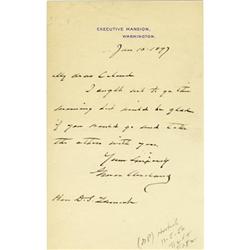 EXECUTIVE MANSION,
WASHINGTON.
Jan 10 1897
My dear Colonel
I ought not to go this
morning but would be glad
if you would go and take
the others with you.
Yours Sincerely
Grover Cleveland
Hon D. S. Lamont